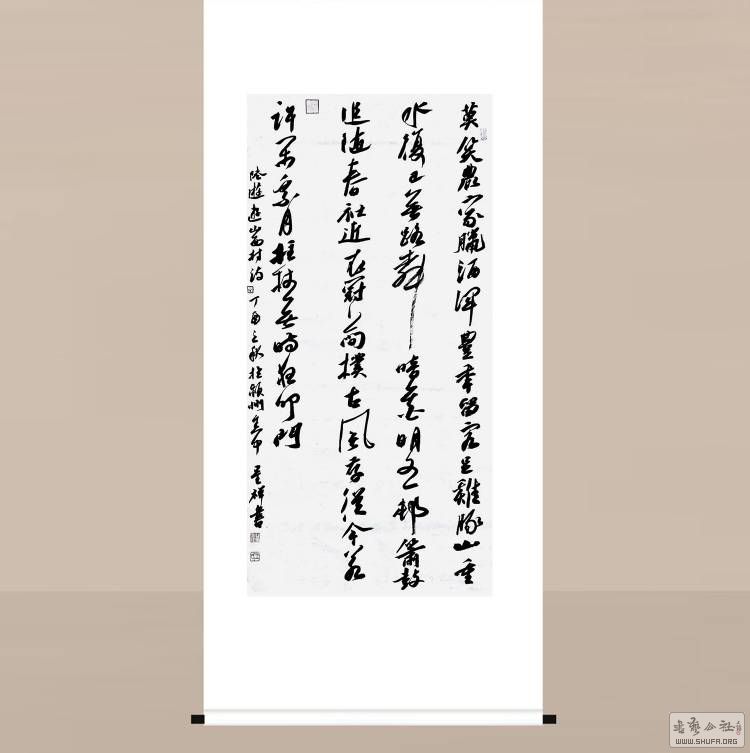 莫笑農家臘酒渾豐年留客足雞豚山重
水復已無路柳暗花明又一邨簫鼓
追隨春社近衣冠簡樸古風存從今若
許閑乘月拄杖無時夜叩門
陸游遊山西村詩 丁酉之秋於潁州 星祥書
書藝公社
WWW.SHUFA.ORG